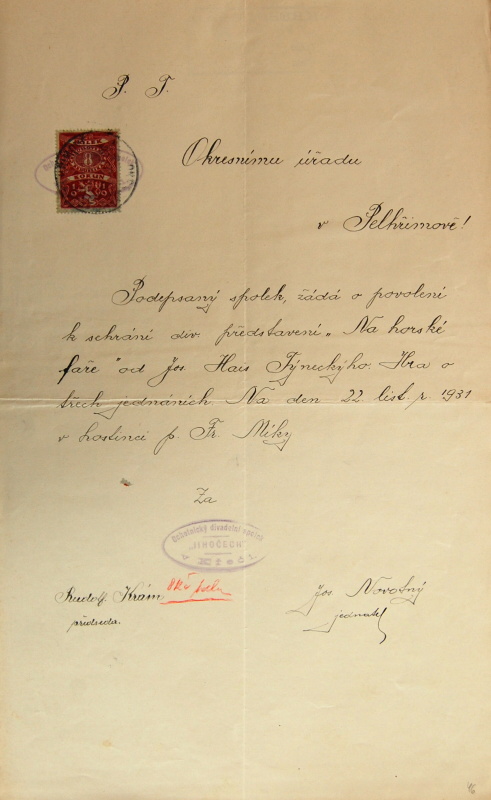 P. T.
KOLEK
8
KORUN
Okresnímu úřadu
v Pelhřimově!
Podepsaný spolek, žádá o povolení
k sehrání div. představení „Na horské
faře" od Jos. Hais Týneckýho. Hra o
třech jednáních. Na den 22 list. r. 1931
v hostinci p. Fr. Míky
Za
Ochotnický divadelní spolek
"JIHOČECH"
v
Rudolf Krám
8 Kč kolek
předseda.
Jos. Novotný
jednatel